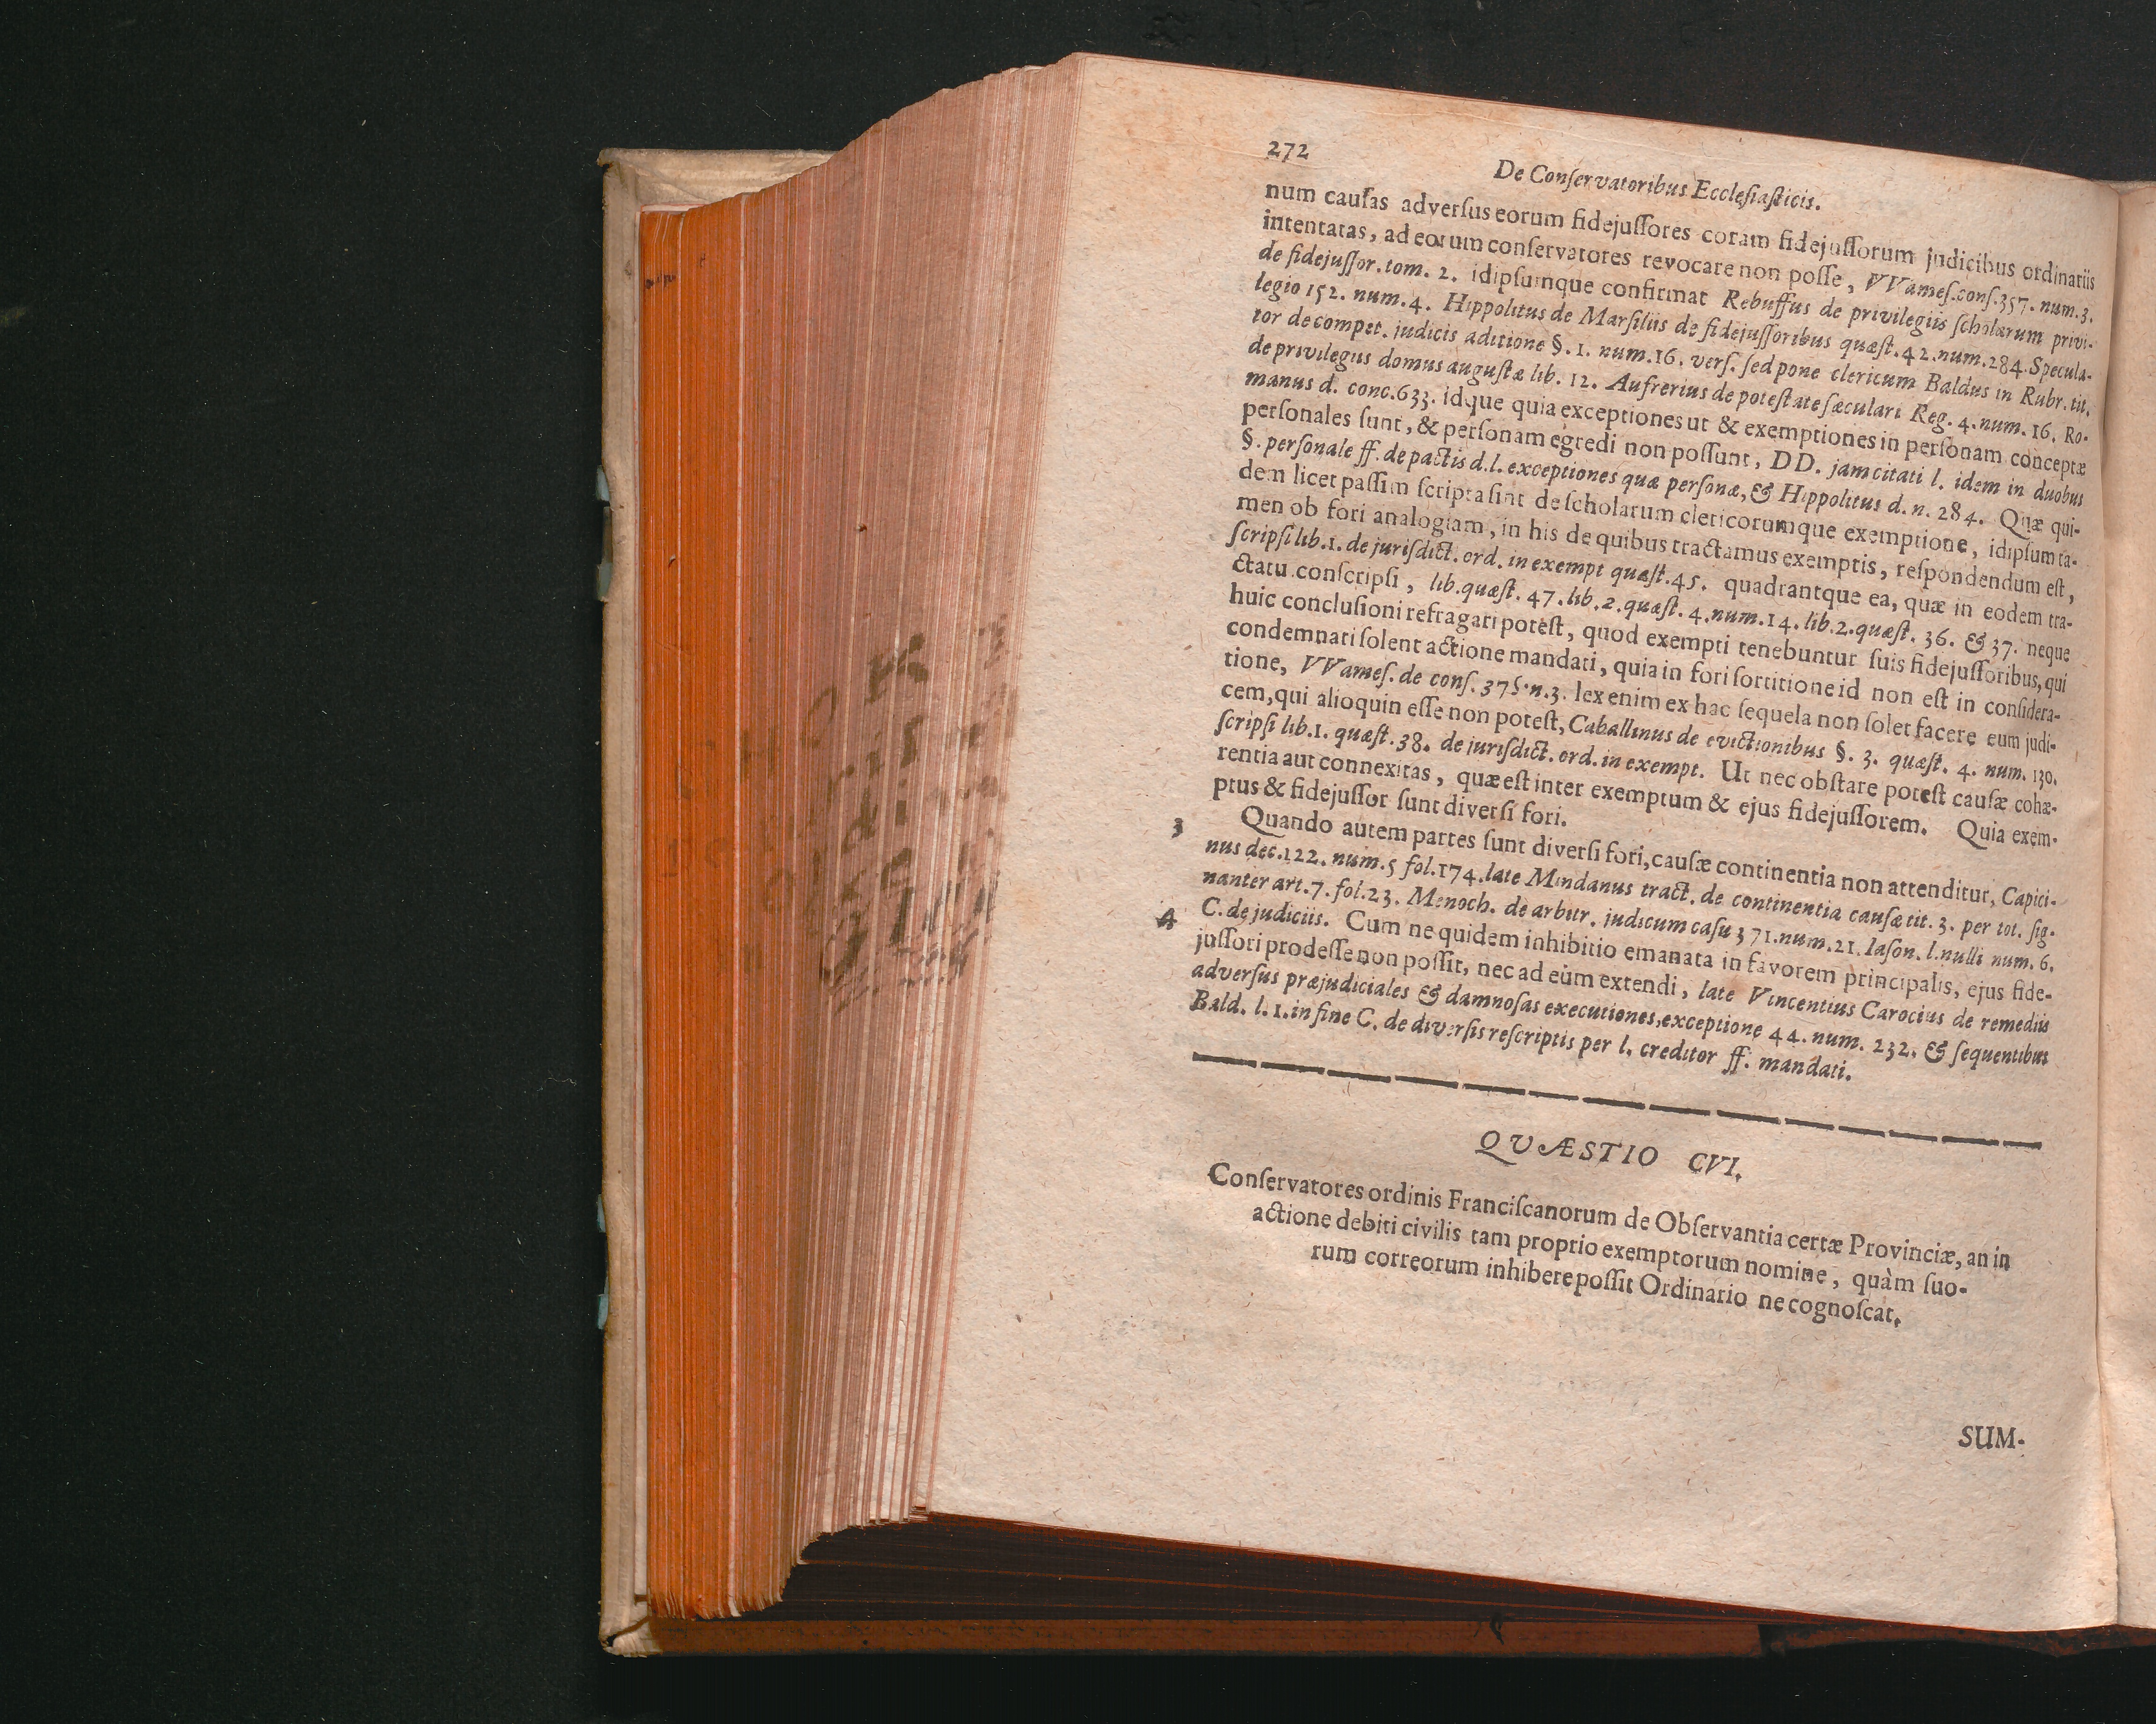 272
De Conſervatoribus Eccleſiaſticis.
num cauſas adverſus eorum fidejuſſores coram fidejuſſorum judicibus ordinariis
intentatas, ad eorum conſervatores revocare non poſſe, VVameſ. conſ. 357. num. 3.
de fidejuſſor. tom. 2. idipſumque confirmat Rebuffus de privilegiis ſcholarum privi-
legio 152. num. 4. Hippolitus de Marſiliis de fidejuſſoribus quæſt. 42. num. 284. Specula-
tor de compet. judicis aditione §. 1. num. 16. verſ. ſed pone clericum Baldus in Rubr. tit.
de privilegiis domus auguſtæ lib. 12. Aufrerius de poteſtate ſæculari Reg. 4. num. 16. Ro-
manus d. conc. 633. idque quia exceptiones ut & exemptiones in perſonam conceptæ
perſonales ſunt, & perſonam egredi non poſſunt, DD. jam citati l. idem in duobus
§. perſonale ff. de pactis d. l. exceptiones quæ perſonæ, & Hippolitus d. n. 284. Quæ qui-
dem licet paſſim ſcripta ſint de ſcholarum clericorumque exemptione, idipſum ta-
men ob fori analogiam, in his de quibus tractamus exemptis, reſpondendum eſt,
ſcripſi lib. 1. de juriſdict. ord. in exempt quæſt. 45. quadrantque ea, quæ in eodem tra-
ctatu conſcripſi, lib. quæſt. 47. lib. 2. quæſt. 4. num. 14. lib. 2. quæſt. 36. & 37. neque
huic concluſioni refragari poteſt, quod exempti tenebuntur ſuis fidejuſſoribus, qui
condemnati ſolent actione mandati, quia in fori ſortitione id non eſt in conſidera-
tione, VVameſ. de conſ. 375. n. 3. lex enim ex hac ſequela non ſolet facere eum judi-
cem, qui alioquin eſſe non poteſt, Caballinus de evictionibus §. 3. quæſt. 4. num. 130.
ſcripſi lib. 1. quæſt. 38. de juriſdict. ord. in exempt. Ut nec obſtare poteſt cauſæ cohæ-
rentia aut connexitas, quæ eſt inter exemptum & ejus fidejuſſorem. Quia exem-
ptus & fidejuſſor ſunt diverſi fori.
3 Quando autem partes ſunt diverſi fori, cauſæ continentia non attenditur, Capici-
nus dec. 122. num. 5 fol. 174. late Mindanus tract. de continentia cauſæ tit. 3. per tot. ſig-
nanter art. 7. fol. 23. Menoch. de arbitr. judicum caſu 371. num. 21. Iaſon. l. nulli num. 6.
4 C. de judiciis. Cum ne quidem inhibitio emanata in favorem principalis, ejus fide-
juſſori prodeſſe non poſſit, nec ad eum extendi, late Vincentius Carocius de remediis
adverſus præjudiciales & damnoſas executiones, exceptione 44. num. 232. & ſequentibus
Bald. l. 1. in fine C. de diverſis reſcriptis per l. creditor ff. mandati.
QUÆSTIO CVI.
Conſervatores ordinis Franciſcanorum de Obſervantia certæ Provinciæ, an in
actione debiti civilis tam proprio exemptorum nomine, quàm ſuo-
rum correorum inhibere poſſit Ordinario ne cognoſcat.
SUM-